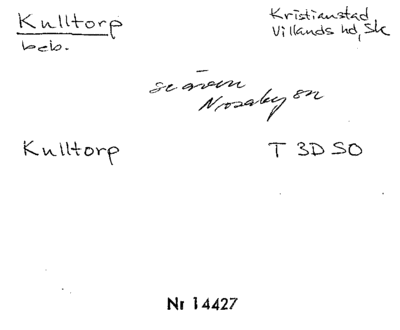 Kulltorp
Kristianstad
beb.
Villands hd, Sk
se även
Nosaby sn
Kulltorp
T 3D SO
Nr 14427